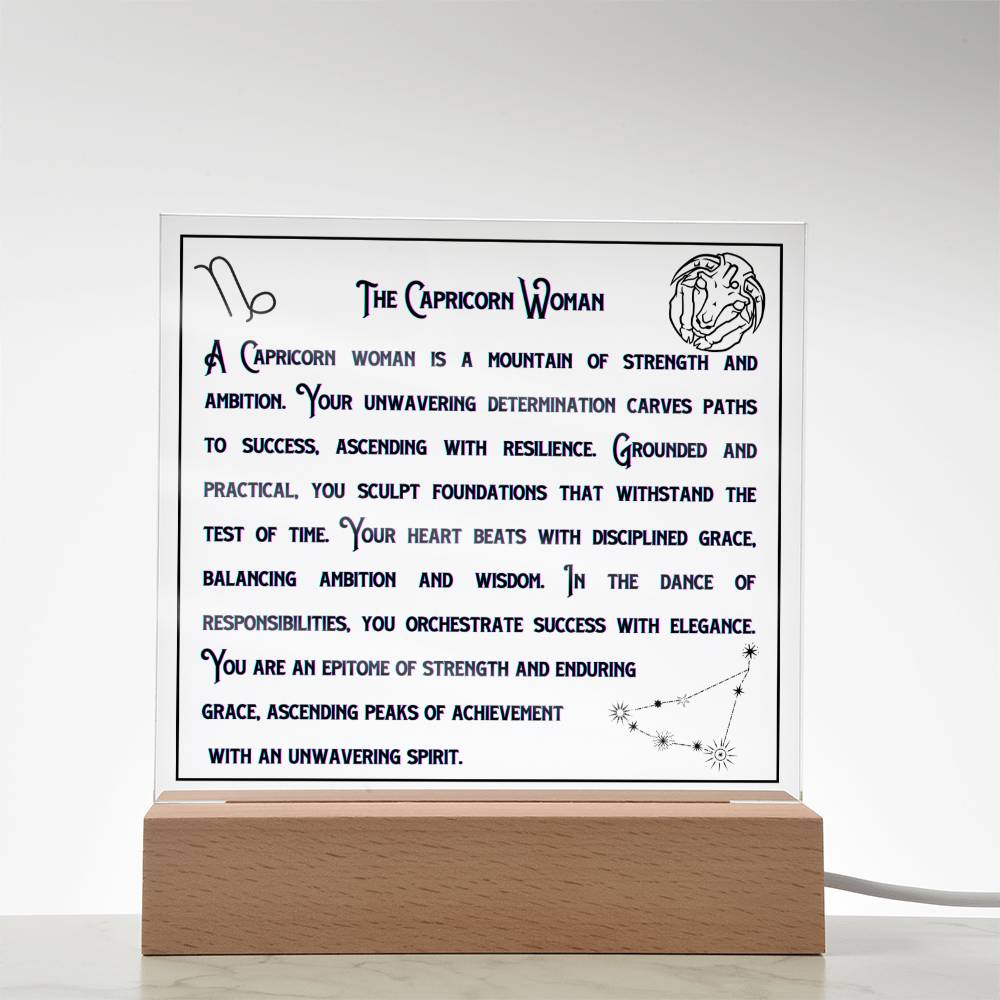 The Capricorn Woman
A Capricorn woman is a mountain of strength and
ambition. Your unwavering determination carves paths
to success, ascending with resilience. Grounded and
practical, you sculpt foundations that withstand the
test of time. Your heart beats with disciplined grace,
balancing ambition and wisdom. In the dance of
responsibilities, you orchestrate success with elegance.
You are an epitome of strength and enduring
grace, ascending peaks of achievement
with an unwavering spirit.